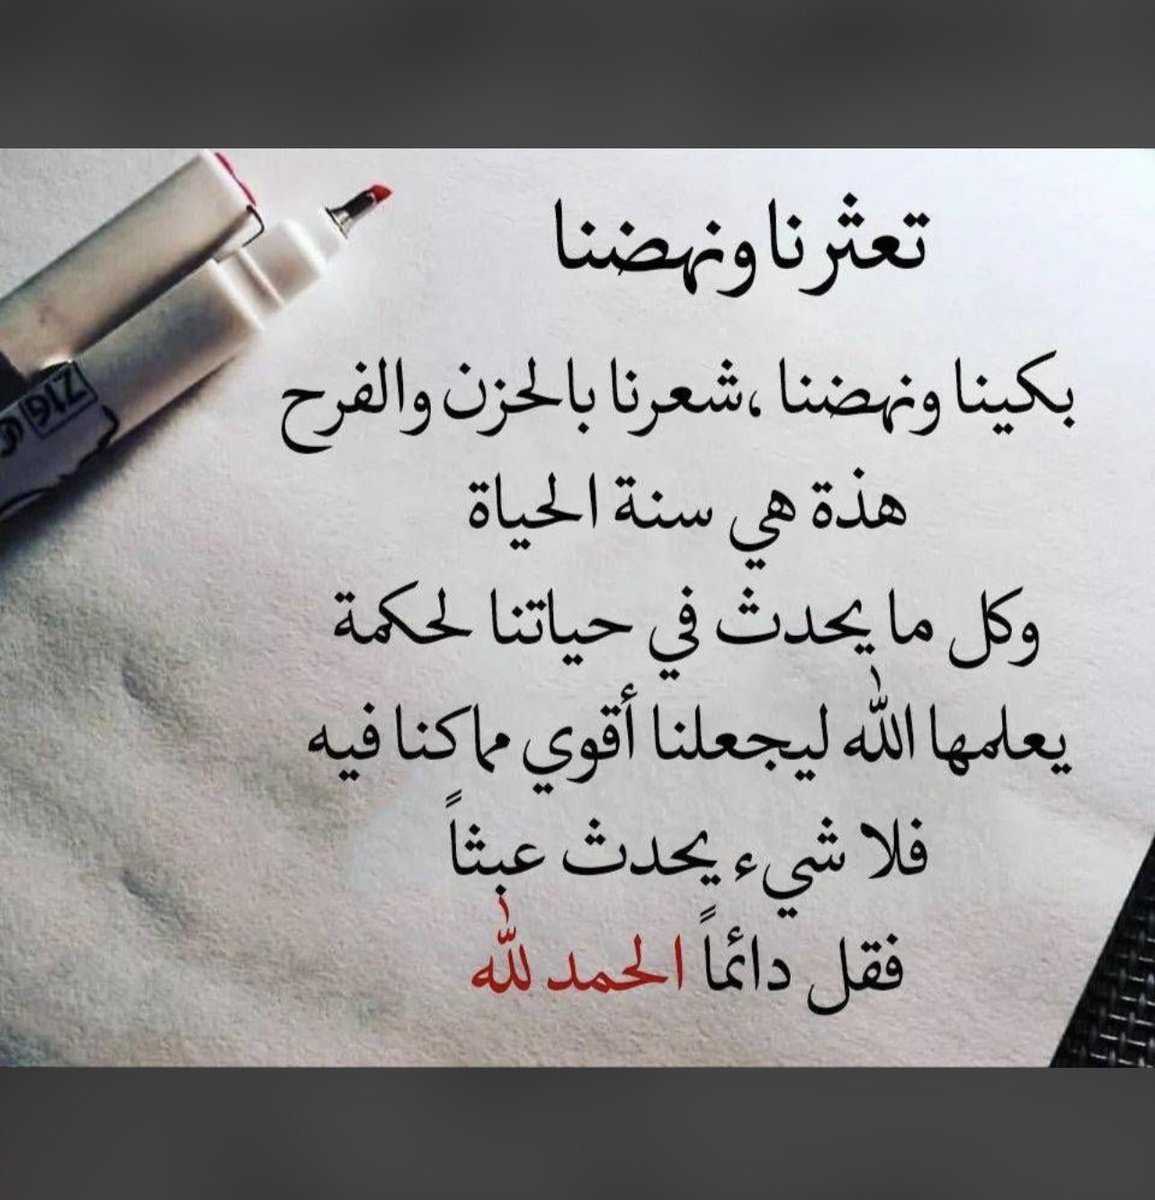 تعثرنا ونهضنا
بكينا ونهضنا ،شعرنا بالحزن والفرح
هذة هي سنة الحياة
وكل ما يحدث في حياتنا لحكمة
يعلمها الله ليجعلنا أقوي مماكنا فيه
فلا شيء يحدث عبثاً
فقل دائماً الحمد لله
ZIG